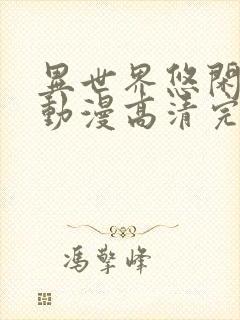 異世界悠閑
動漫高清完
馮擎峰